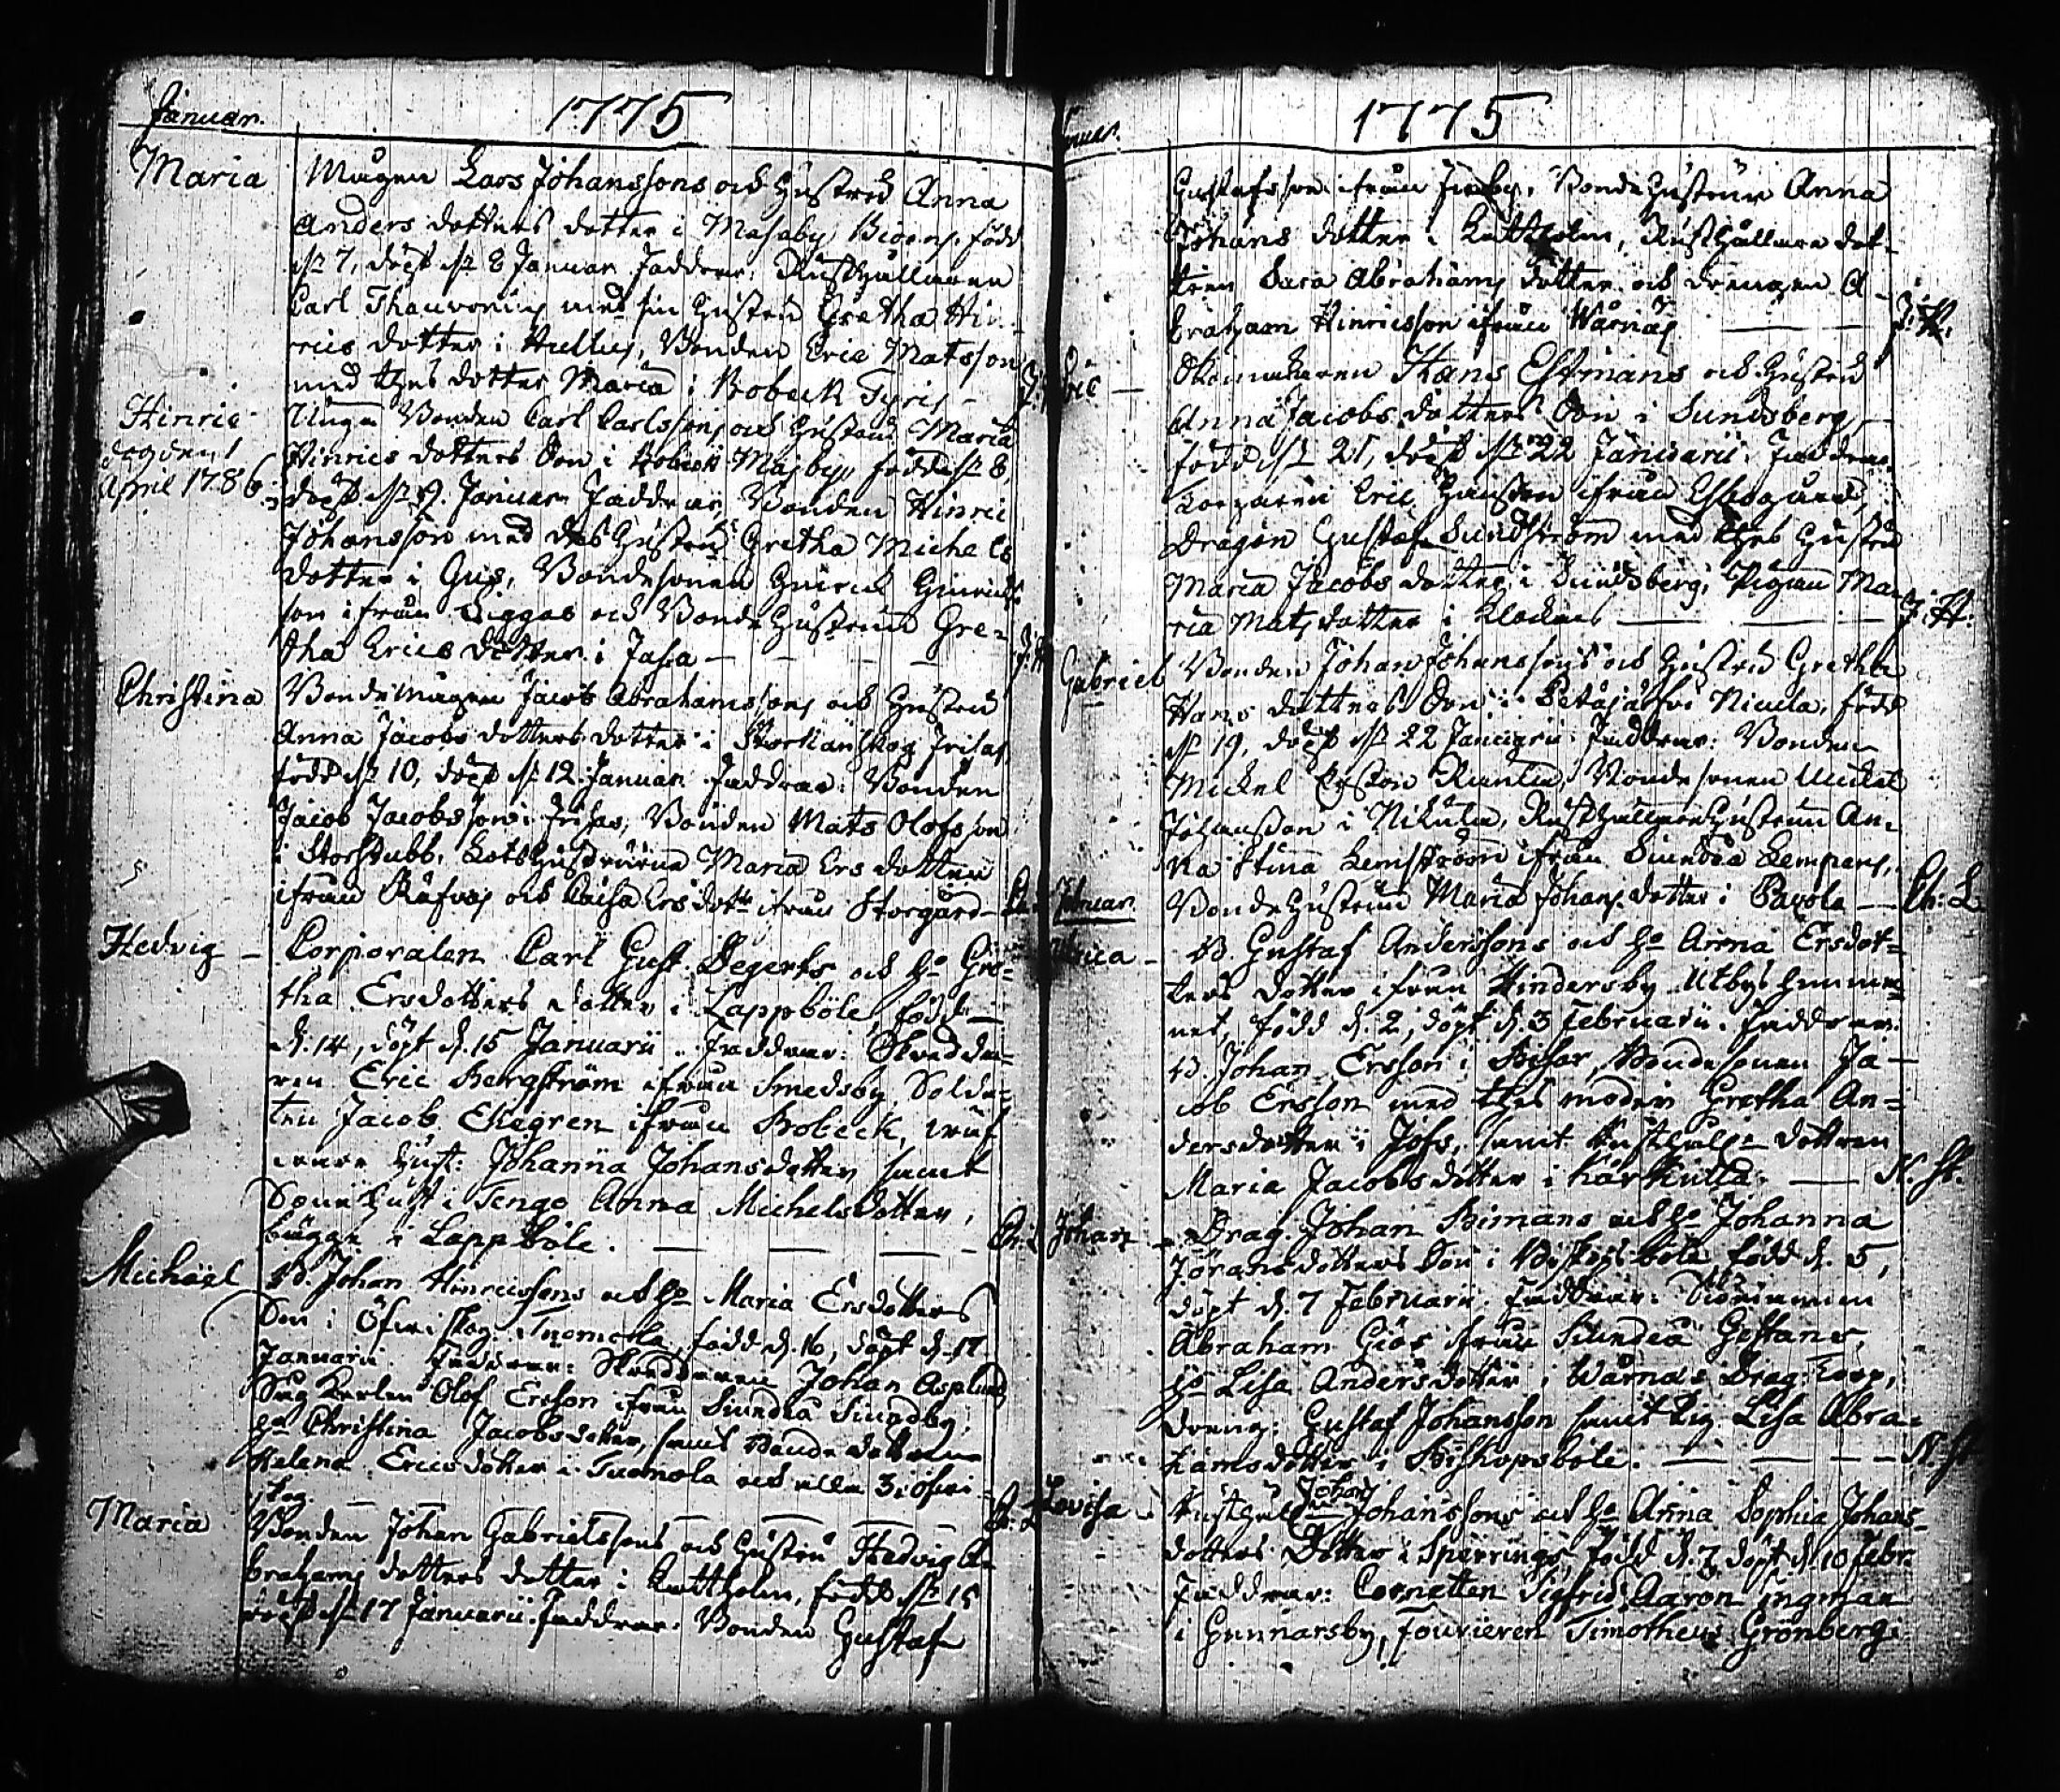 Januar.
1775
Maria
Mågen Lars Johanssons och Hustrus Anna
Anders dotters dotter i Masaby Bioens, född
d. 7, döpt d. 8 Januar. Faddrar, Rusthållaren
Carl Thauvonius med sin Hustru Gretha Hin-
rics dotter i Hullus, Bonden Eric Matsson
med thes dotter Maria i Bobeck Tyris -
Hinric
dog den 1
April 1786
Unga Bonden Carl Carlssons och Hustrus Maria
Hinrics dotters Son i Bobeck Masby, född d. 8,
döpt d. 9. Januar. Faddrar, Bonden Hinric
Johansson med des Hustru Gretha Michels
dotter i Gus, Bondesonen Hinric Hinrics-
son ifrån Siggas och Bonde Hustrun Gre-
tha Erics dotter i Jassa
Christina
Bonde mågen Jacob Abrahamssons och Hustrus
Anna Jacobs dotters dotter i Storkanskog Frisas
född d. 10, döpt d. 12. Januar. Faddrar: Bonden
Jacob Jacobsson i Frisas, Bonden Mats Olofsson
i Storstubb, Lots Hustrurna Maria Ers dotter
ifrån Räfvas och Caisa Ers dottr ifrån Storgård
Hedvig -
Corporalen Carl Gust. Segerts och Ho Gre-
tha Ersdotters dotter i Lappböle, född
d. 14, döpt d. 15 Januarii. Faddrar: Skredda-
ren Eric Bergström ifrån Smedsby, Solda-
ten Jacob Ekegren ifrån Bobeck,
Hust: Johanna Johansdotter samt
Hust i Tengo Anna Michelsdotter,
bägge i Lappböle.
Ch: L
Michael
B. Johan Hinricssons och Ho Maria Ersdotters
Son i Öfvriskog Tuomola, född d. 16, döpt d. 17
Januarii. Faddrar: Skreddaren Johan Asplund
Olof Ersson ifrån Siundeå Siundby,
Hu Christina Jacobsdotter, samt Bonde dottern
Helena Ericsdotter i Tuomola och alla 3 i Öfvri-
skog.
Ch: L
Maria
Bonden Johan Gabrielssons och Hustrus Hedvig A-
brahams dotters dotter i Kattholm, född d. 15
döpt d. 17 Januarii. Faddrar: Bonden Gustaf
1775
Gustafsson ifrån, Bonde Hustrun Anna
Johans dotter i Kattholm, Rusthållare dot-
tren Sara Abrahams dotter och drengen A-
braham Hinricsson ifrån Wårnäs
J: H:
Eric -
Skomakaren Hans Estmans och Hustrus
Anna Jacobs dotters Son i Sundsberg,
född d. 21, döpt d. 22 Januarii. Faddrar.
Eric ifrån Esbogård,
Dragon Gustaf Sundström med thes Hustru
Maria Jacobs dotter i Sundsberg, Pigan Ma-
ria Mats dotter i Klockars
J: H:
Gabriel
Bonden Johan Johanssons och Hustrus Gretha
Hans dotters Son i Petäjärfvi Niuula, född
d. 19, döpt d. 22 Januarii. Faddrar: Bonden
Mickel, Bonde sonen Mickel
Johansson i Nikula, Rusthållare Hustrun An-
na Stina Lemström ifrån Siundeå Lempans,
Bonde Hustrun Maria Johans dotter i Pavola -
Ch: L
Februar.
Ulrica -
B. Gustaf Anderssons och Ho Anna Ersdot-
ters dotter ifrån Hindersby Utbys hemma-
net, född d. 2, döpt d. 3 Februarii. Faddrar:
B. Johan Ersson i Bisar, Bonde sonen Ja-
cob Ersson med thes moder Gretha An-
dersdotter i Jofs, samt Rusthåll. dottren
Maria Jacobsdotter i Kårkulla.
N. St.
Johan
Drag. Johan Bimans och Ho Johanna
Jöransdotters Son i Biskopsböle, född d. 5,
döpt d. 7 Februarii. Faddrar:
Abraham Giös ifrån Siundeå Gestans,
Ho Lisa Andersdotter i Wårnäs Drag. Torp,
dreng: Gustaf Johansson samt Pig. Lisa Abra-
hamsdotter i Biskopsböle.
N. St.
Lovisa
Rusthåll. Johan Johanssons och Ho Anna Sophia Johans-
dotters Dotter i Sperrings, född d. 7, döpt d. 10 Febr.
Faddrar: Cornetten Sigfrid Aaron Ingman
i Gunnarsby, Fourieren Timotheus Grönberg